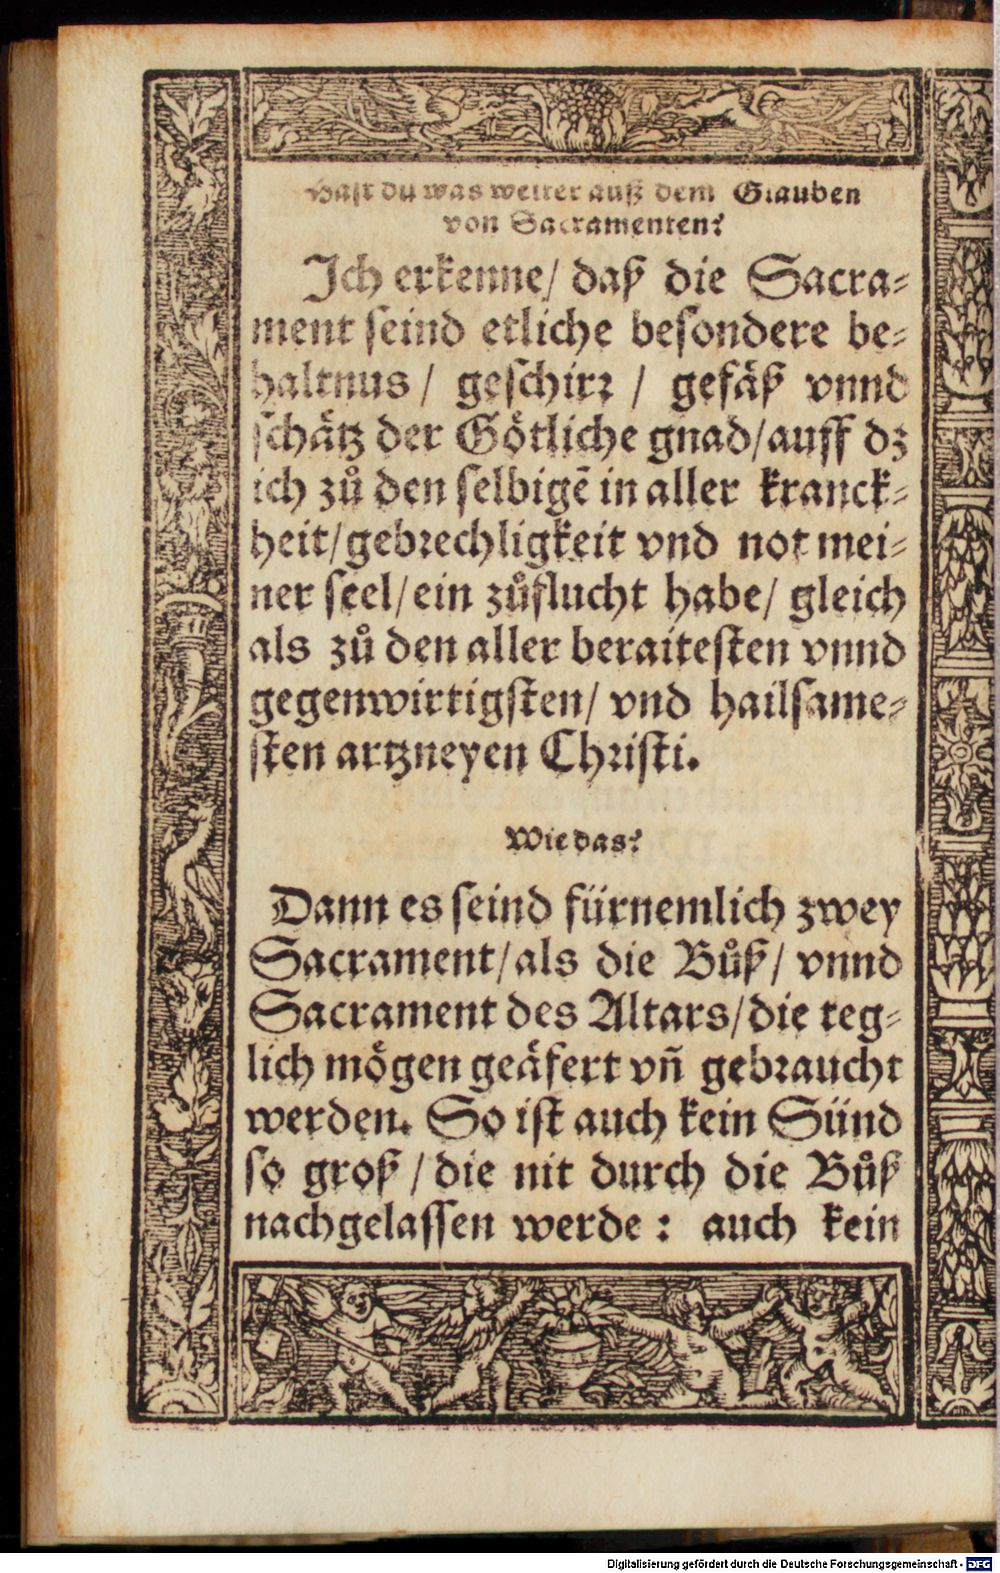 Hast du was weiter auß dem Glauben
von Sacramenten?
Ich erkenne/ daß die Sacra⸗
ment seind etliche besondere be⸗
haltnus / geschirr / gefäß vnnd
schätz der Götliche gnad/auff dz
ich zů den selbigẽ in aller kranck⸗
heit/gebrechligkeit vnd not mei⸗
ner seel/ein zůflucht habe/ gleich
als zů den aller beraitesten vnnd
gegenwirtigsten/ vnd hailsame⸗
sten artzneyen Christi.
Wie das?
Dann es seind fürnemlich zwey
Sacrament/als die Bůß/ vnnd
Sacrament des Altars/die teg⸗
lich mögen geäfert vñ gebraucht
werden. So ist auch kein Sünd
so groß / die nit durch die Bůß
nachgelassen werde : auch kein
Digitalisierung gefördert durch die Deutsche Forschungsgemeinschaft - DFG